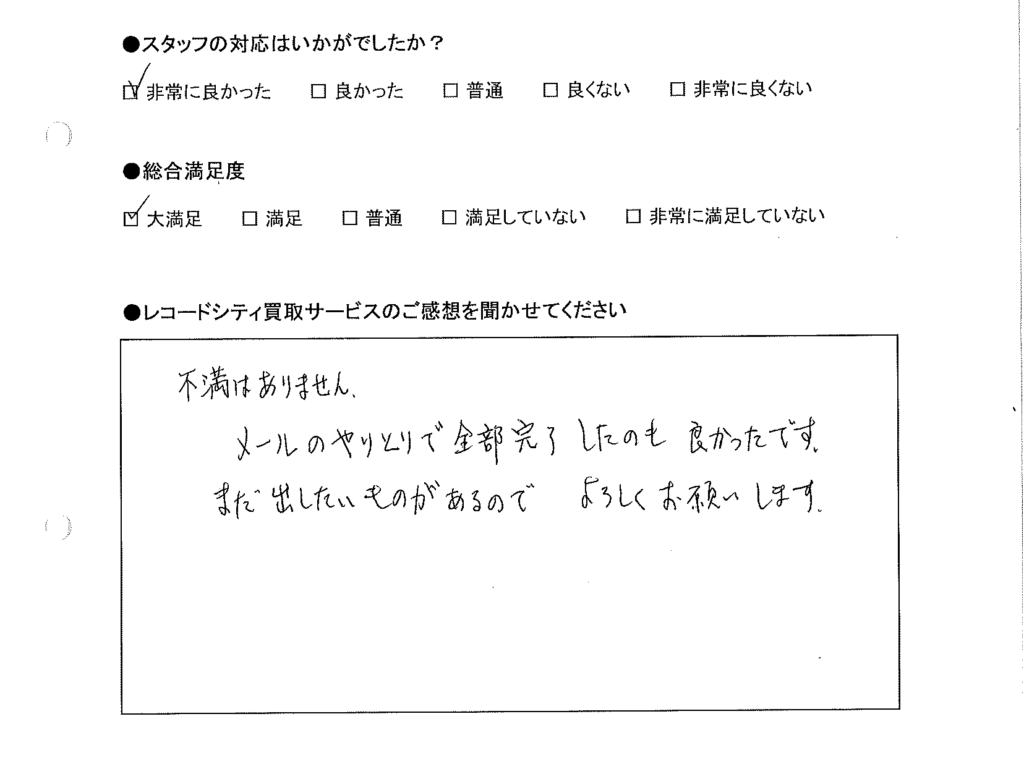 ●スタッフの対応はいかがでしたか？
☑ 非常に良かった　□ 良かった　□ 普通　□ 良くない　□ 非常に良くない
●総合満足度
☑ 大満足　□ 満足　□ 普通　□ 満足していない　□ 非常に満足していない
●レコードシティ買取サービスのご感想を聞かせてください
不満はありません.
メールのやりとりで全部完了したのも 良かったです.
まだ出したいものがあるので よろしくお願いします.